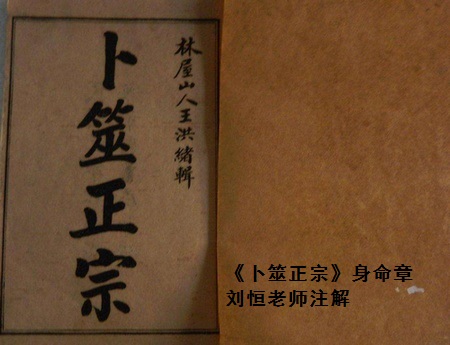 林屋山人王洪緒輯
卜筮正宗
《卜筮正宗》身命章
刘恒老师注解